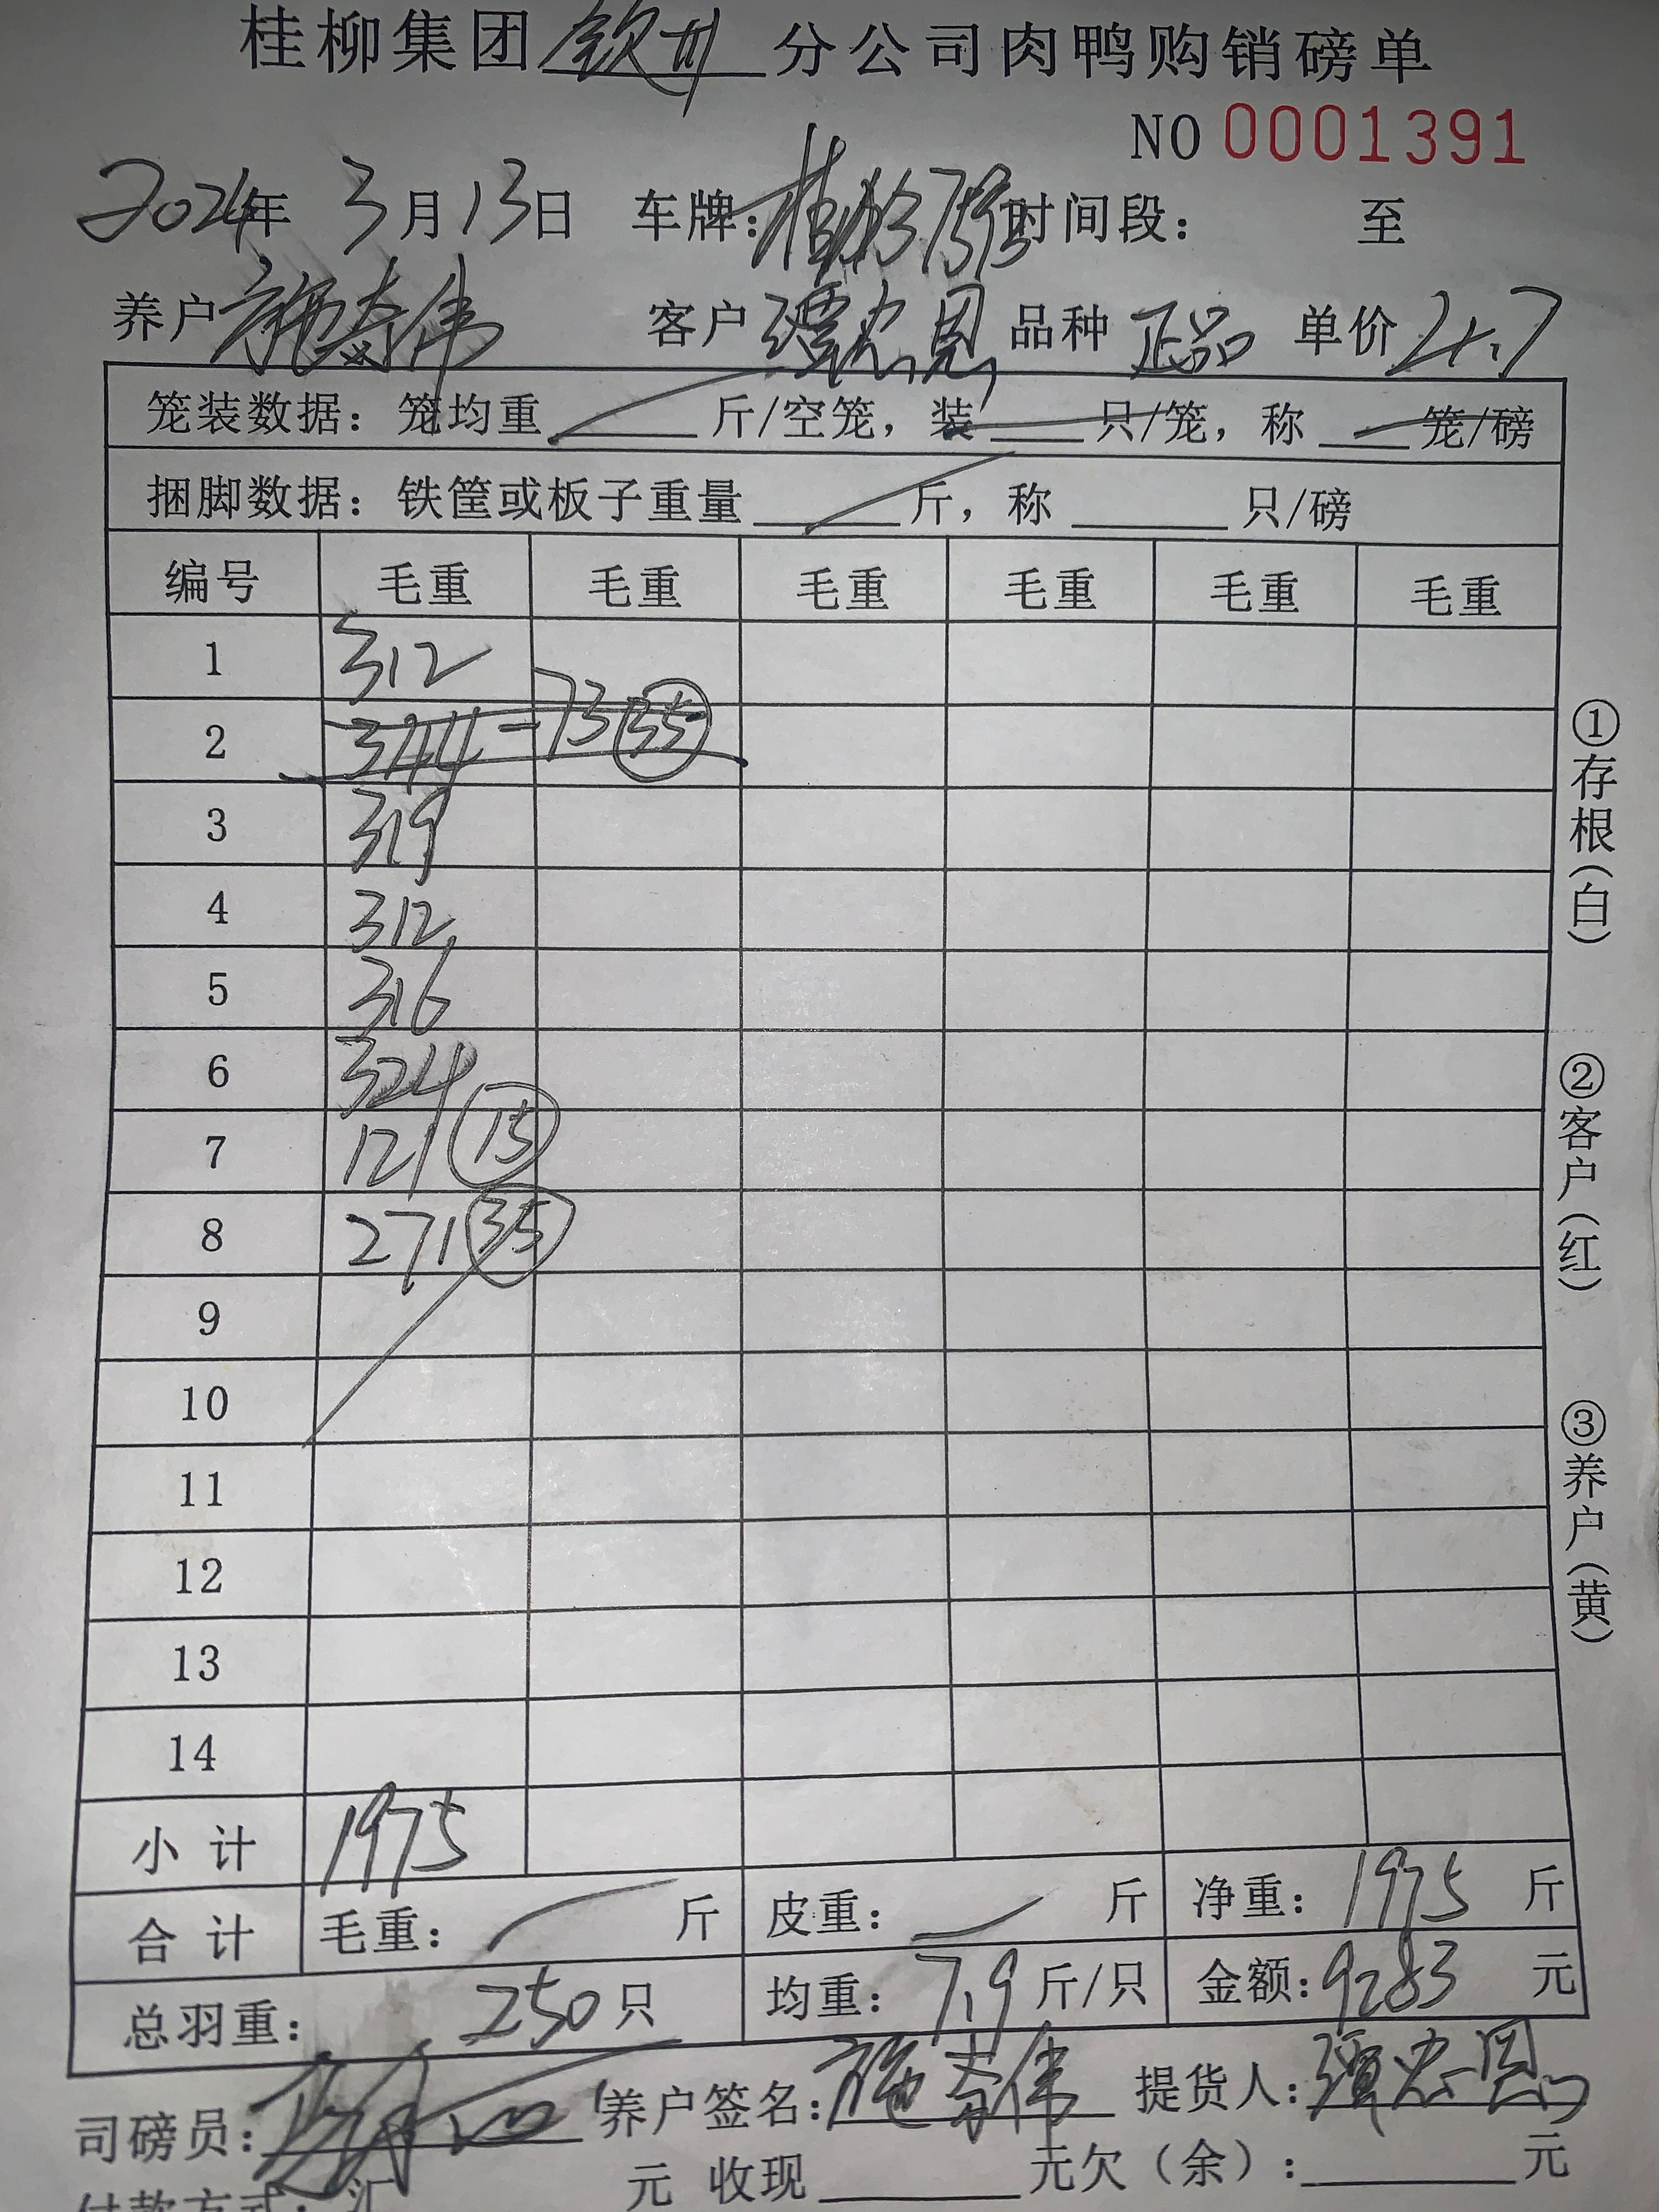 桂柳集团钦州分公司肉鸭购销磅单
NO 0001391
2024年 3月13日 车牌: 时间段: 至
养户 施春伟 客户 谭忠恩 品种 正品 单价 4.7
笼装数据: 笼均重 斤/空笼, 装 只/笼, 称 笼/磅
捆脚数据: 铁筐或板子重量 斤, 称 只/磅
编号 毛重 毛重 毛重 毛重 毛重 毛重
1 312
2 344-73 35
3 319
4 312
5 316
6 324
7 121 15
8 271 35
9
10
11
12
13
14
小计 1975
合计 毛重: 斤 皮重: 斤 净重: 1975 斤
总羽重: 250只 均重: 7.9斤/只 金额: 9283 元
司磅员: 养户签名: 施春伟 提货人: 谭忠恩
付款方式: 汇 元 收现 元欠(余): 元
①存根(白)
②客户(红)
③养户(黄)